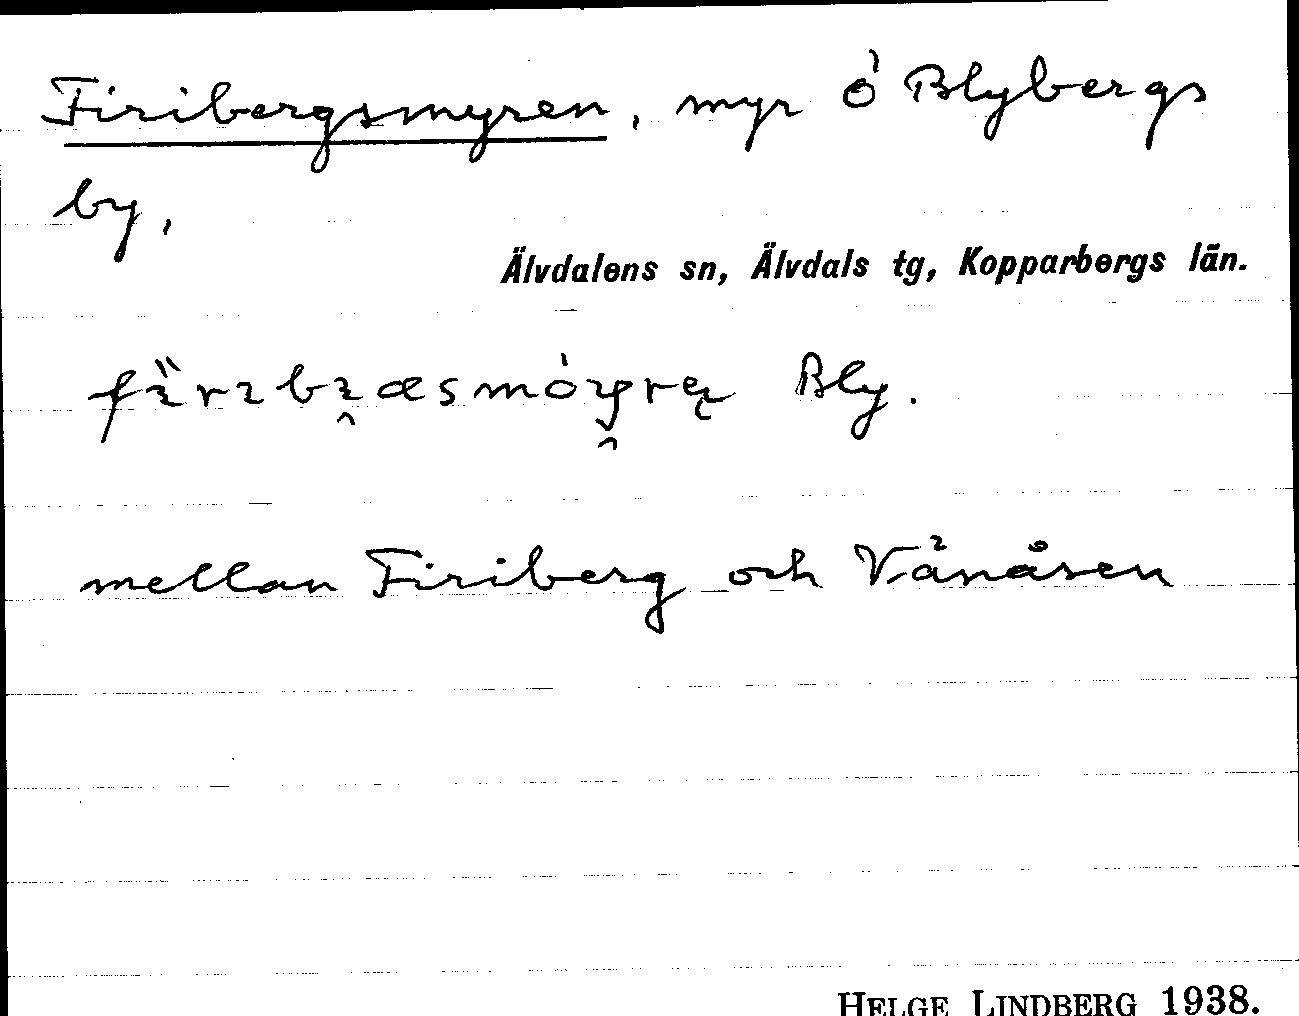 Firibergsmyren, myr Ö Blybergs
by,
Älvdalens sn, Älvdals tg, Kopparbergs län.
Bly.
mellan Firiberg och V. ånåsen
HELGE LINDBERG 1938.